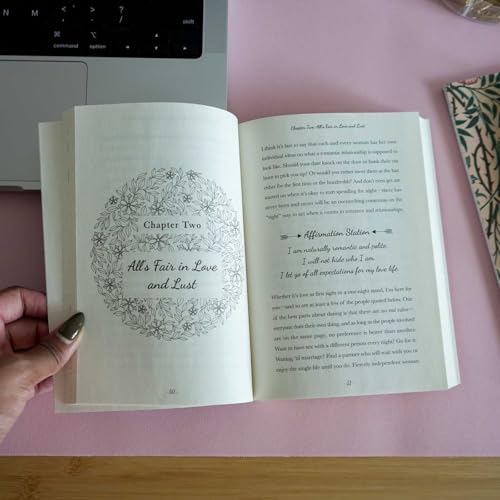 N
M
<
>
?
,
.
/
shift
⌘
⌥
command
option
Chapter Two
All's Fair in Love
and Lust
50
Chapter Two: All's Fair in Love and Lust
I think it's fair to say that each and every woman has her own
individual ideas on what a romantic relationship is supposed to
look like. Should your date knock on the door or honk their
horn to pick you up? Or would you rather meet at the bar
either for the first time or the hundredth? And don't even get us
started on when it's okay to start spending the night—there has
never been and never will be an overarching consensus on the
"right" way to act when it comes to romance and relationships.
Affirmation Station
I am naturally romantic and polite.
I will not hide who I am.
I let go of all expectations for my love life.
Whether it's love at first sight or a one-night stand, I'm here for
you—and so are at least a few of the people quoted below. One
of the best parts about dating is that there are no real rules—
everyone does their own thing, and as long as the people involved
are on the same page, no preference is better than another.
Want to have sex with a different person every night? Go for it.
Waiting 'til marriage? Find a partner who will wait with you or
enjoy the single life until you do. Fiercely independent woman
51